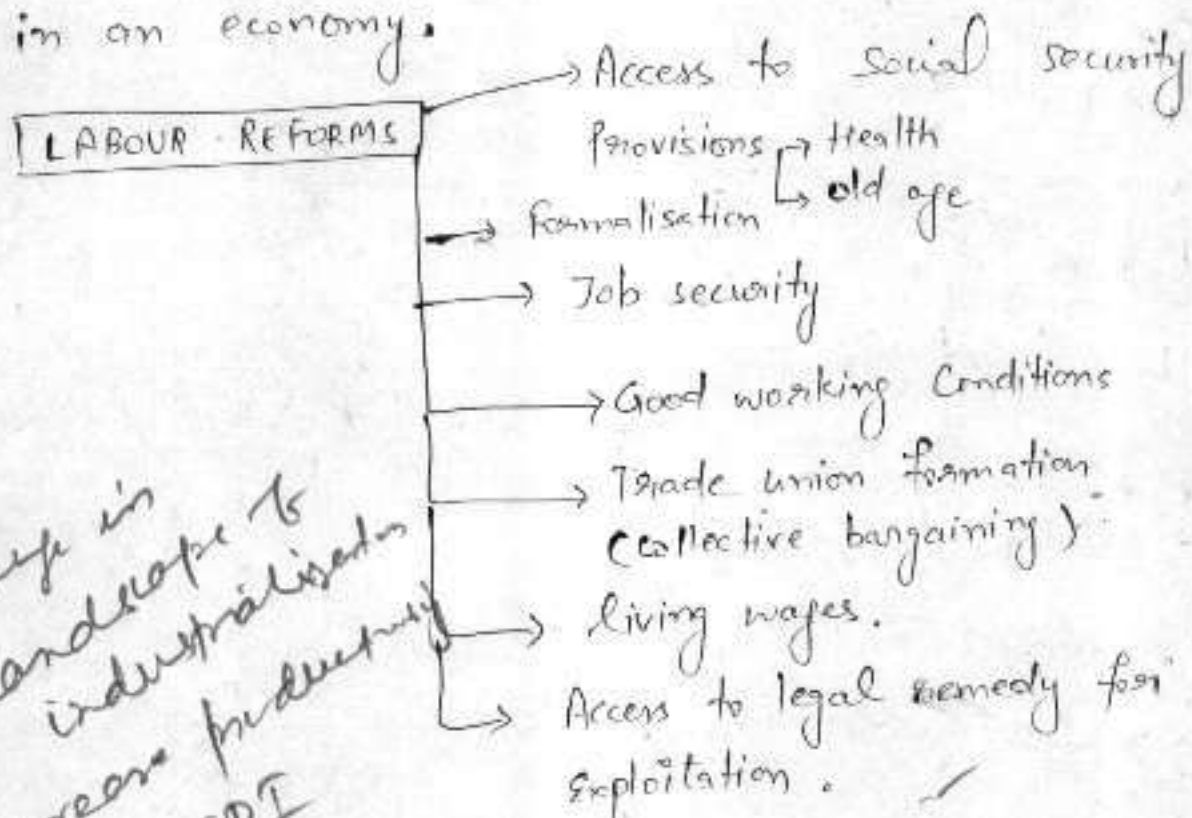 in an economy.
LABOUR REFORMS
Access to social security
Provisions → Health
→ old age
Formalisation
Job security
Good working Conditions
Trade union formation
(collective bargaining)
living wages.
Access to legal remedy for
exploitation.
in
landscape to
industrialisation
productivity